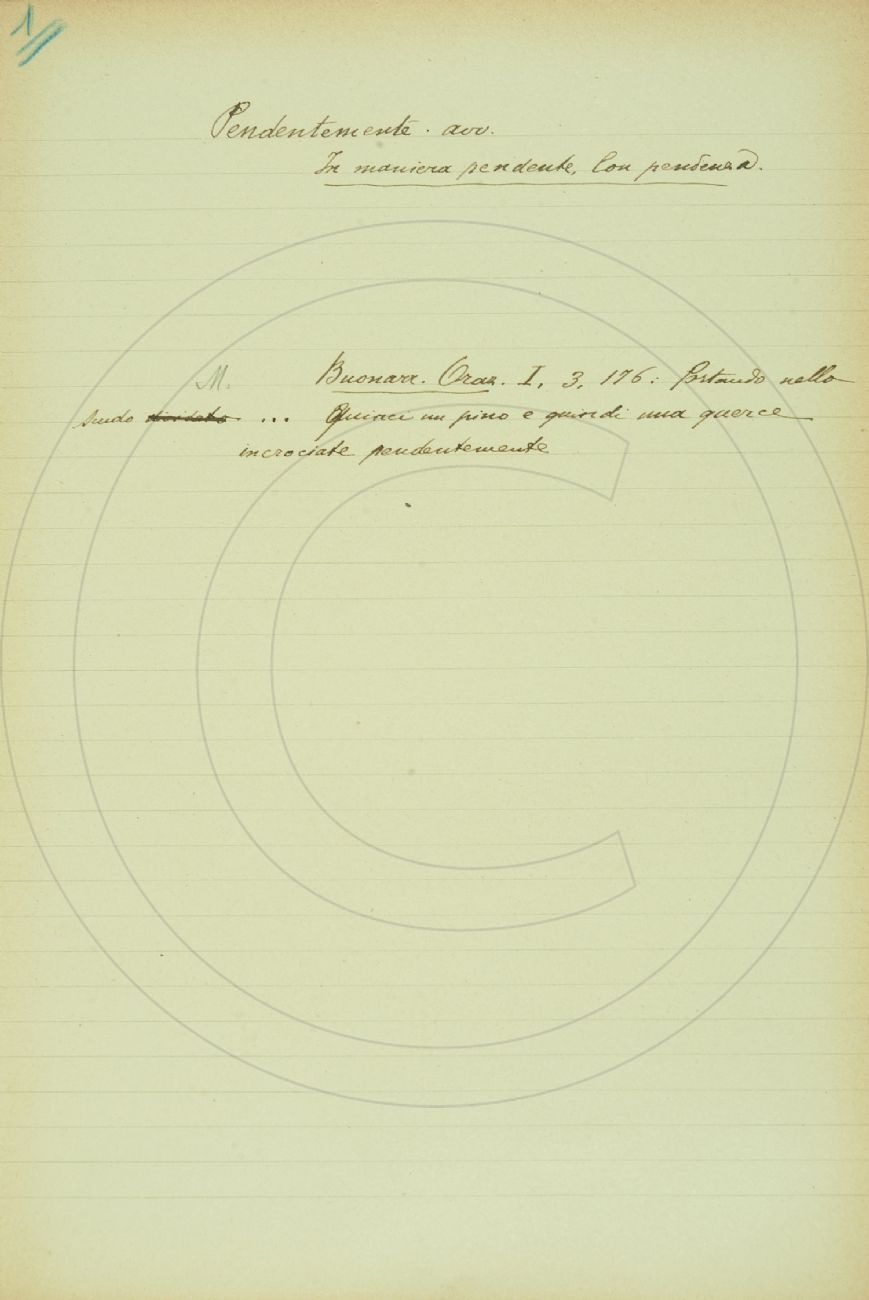 1
Pendentemente. avv.
In maniera pendente, Con pendenza.
M. Buonarr. Oraz. I, 3, 176: Portando nello
scudo ... Quinci un pino e quindi una querce
incrociate pendentemente